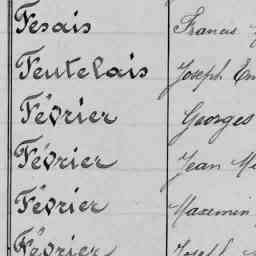 Fesais Francis
Feutelais Joseph Em
Février Georges
Février Jean Me
Février Maxemin
Février Joseph